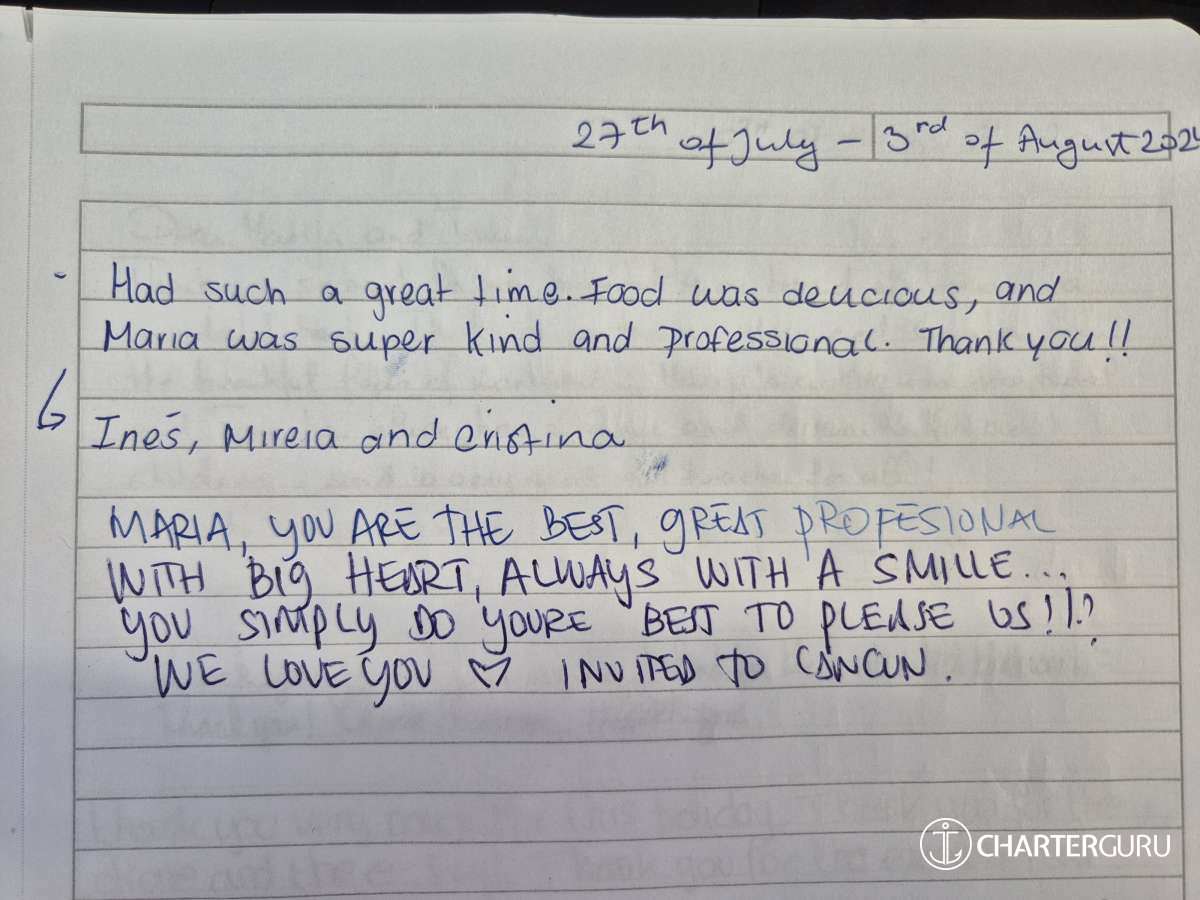 27th of July - 3rd of August 202
- Had such a great time. Food was deucious, and
Maria was super kind and professional. Thank you!!
Inés, Mireia and Cristina
MARIA, YOU ARE THE BEST, GREAT PROFESIONAL
WITH BIG HEART, ALWAYS WITH A SMILLE...
YOU SIMPLY DO YOURE BEST TO PLEASE US!!?
WE LOVE YOU ♡ INVITED TO CANCUN.
CHARTERGURU